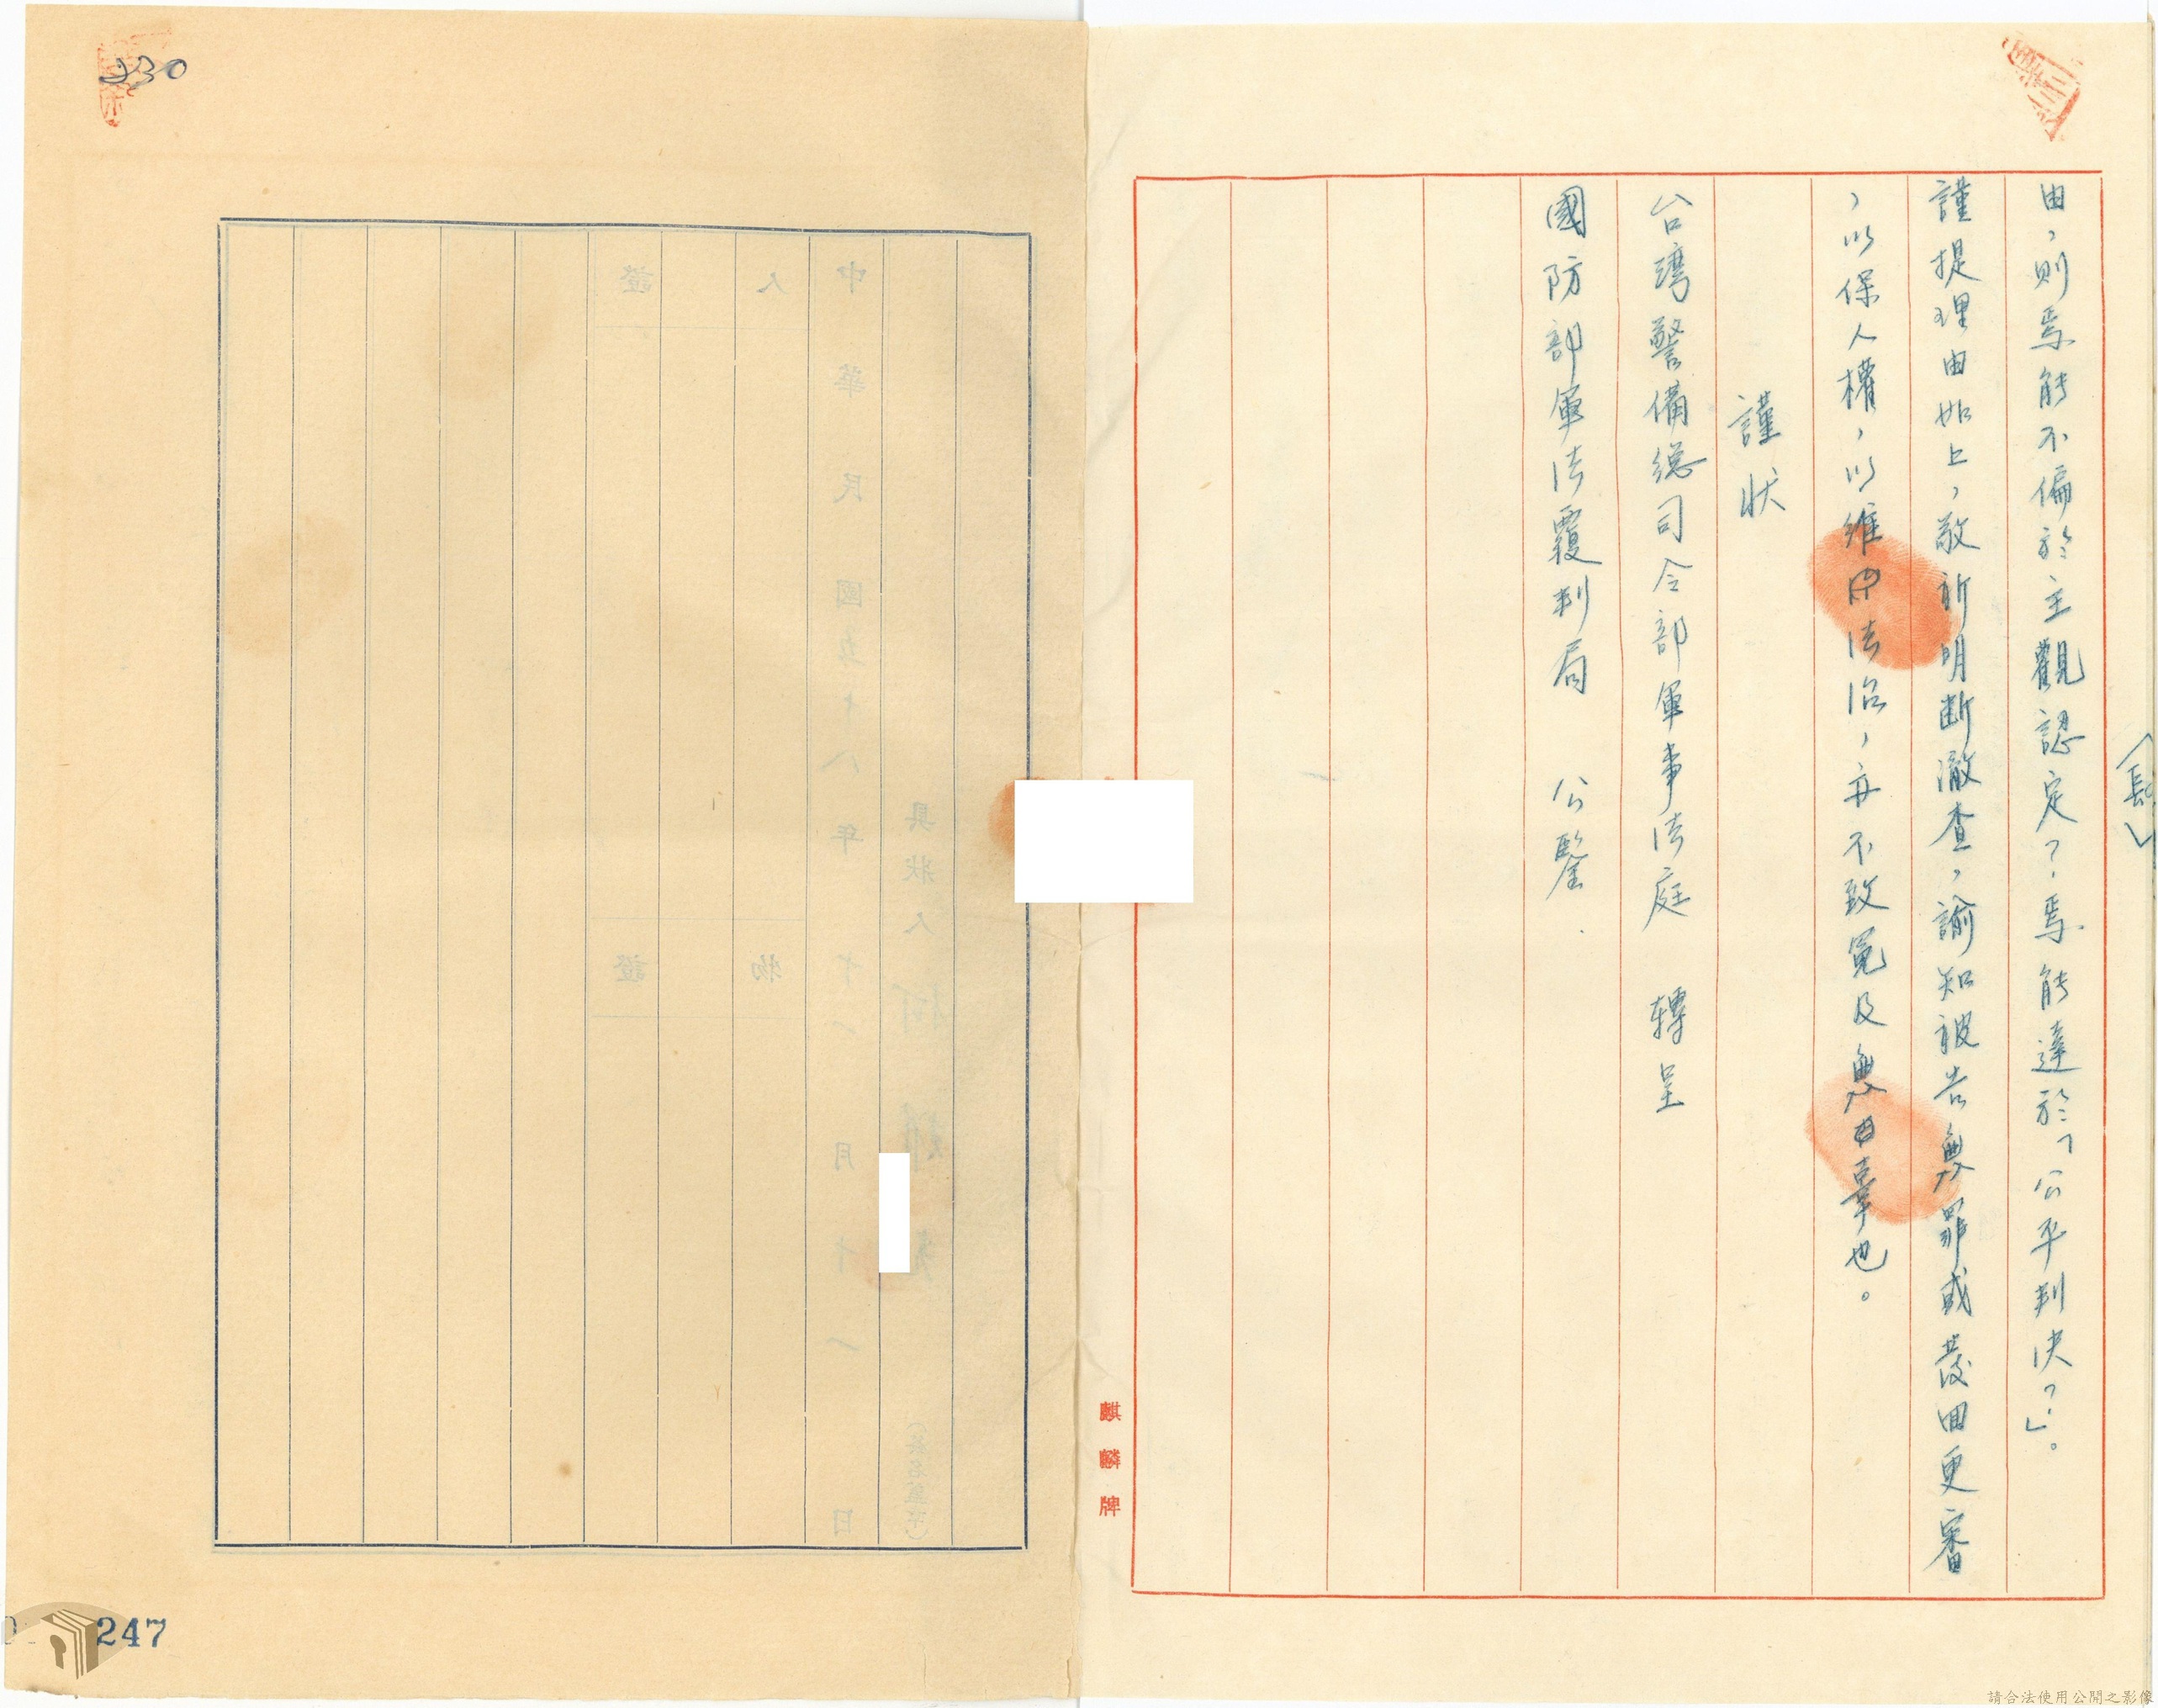 由，則焉能不偏於主觀認定？焉能達於「公平判決？」。
謹提理由如上，敬祈明斷澈查，諭知被告無罪或發回更審
，以保人權，以維法治，亦不致冤及無辜也。
謹狀
台灣警備總司令部軍事法庭　轉呈
國防部軍法覆判局　公鑒
麒麟牌
230
具狀人
中華民國五十八年十一月十一日
人　物
證　證
247
請合法使用公開之影像